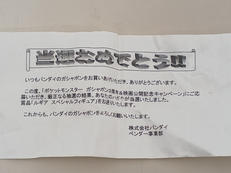 当選おめでとう!!
いつもバンダイのガシャポンをお買いあげいただき、ありがとうございます。
この度、「ポケットモンスター ガシャポン2周年&映画公開記念キャンペーン」にご応
募いただき、厳正なる抽選の結果、あなたが当選いたしました。
賞品「ルギア スペシャルフィギュア」をお送りいたします。
これからも、バンダイのガシャポンをよろしくお願いいたします。
株式会社バンダイ
ベンダー事業部